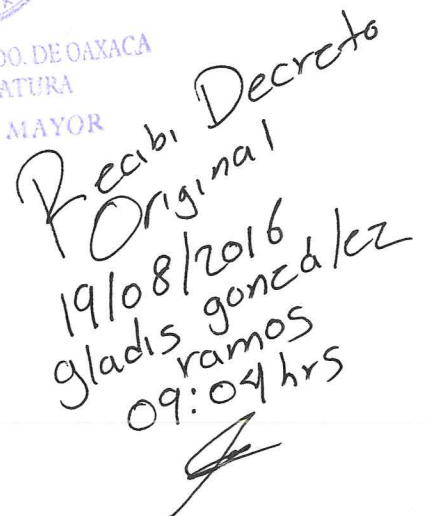 DO. DE OAXACA
ATURA
MAYOR
Recibi Decreto
Original
19/08/2016
gladis gonzález
ramos
09:04 hrs